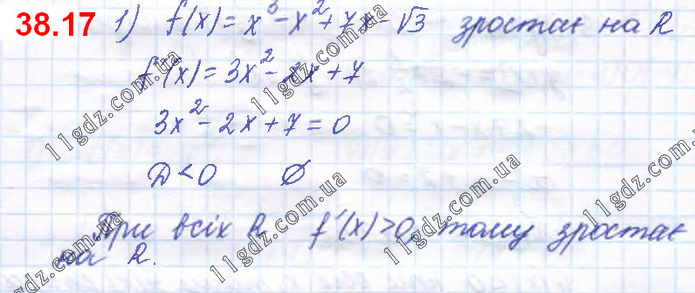 38.17 1) f(x) = x³ - x² + 7x - √3 зростає на R
f'(x) = 3x² - 2x + 7
3x² - 2x + 7 = 0
D < 0 ∅
При всіх R f'(x) > 0, тому зростає
на R.
11gdz.com.ua
11gdz.com.ua
11gdz.com.ua
11gdz.com.ua
11gdz.com.ua
11gdz.com.ua